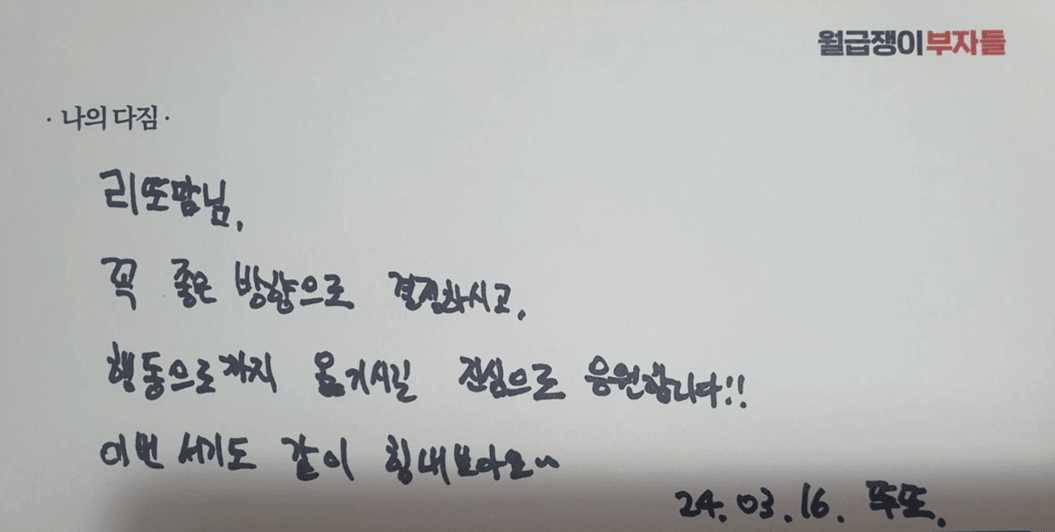 월급쟁이부자들
· 나의 다짐 ·
리또맘님,
꼭 좋은 방향으로 결정하시고,
행동으로까지 옮기시길 진심으로 응원합니다!!
이번 서기도 같이 힘내보아요~
24.03.16. 뚜또.